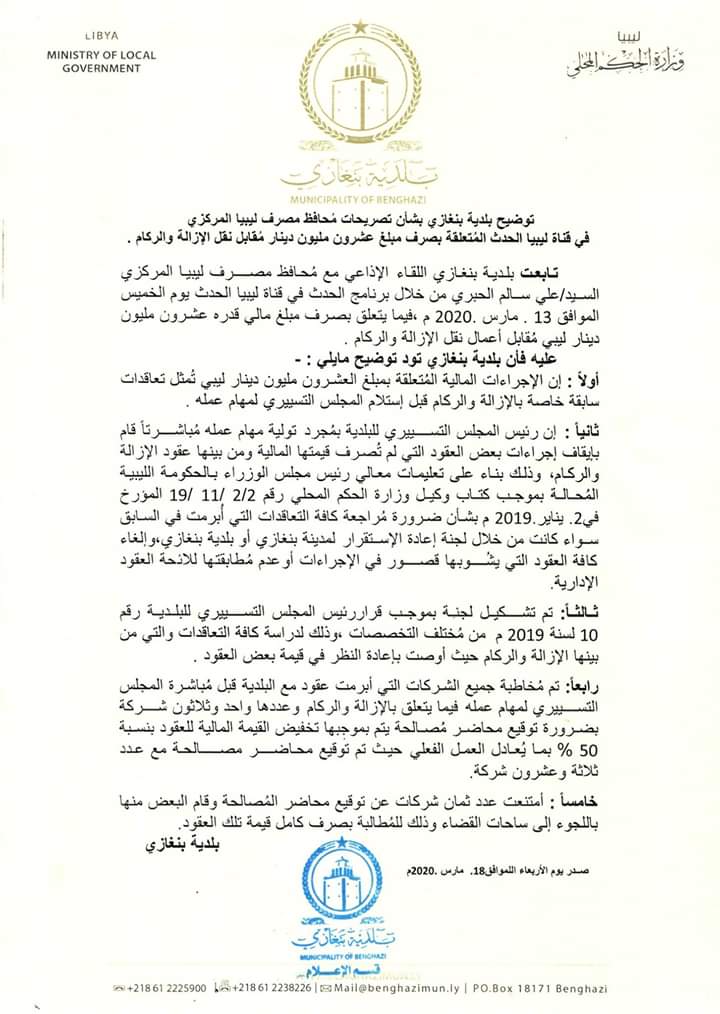 LIBYA
MINISTRY OF LOCAL
GOVERNMENT
ليبيا
وزارة الحكم المحلي
بلدية بنغازي
MUNICIPALITY OF BENGHAZI
توضيح بلدية بنغازي بشأن تصريحات مُحافظ مصرف ليبيا المركزي
في قناة ليبيا الحدث المُتعلقة بصرف مبلغ عشرون مليون دينار مُقابل نقل الإزالة والركام .
تابعت بلدية بنغازي اللقاء الإذاعي مع مُحافظ مصرف ليبيا المركزي
السيد/علي سالم الحبري من خلال برنامج الحدث في قناة ليبيا الحدث يوم الخميس
الموافق 13 . مارس .2020 م ،فيما يتعلق بصرف مبلغ مالي قدره عشرون مليون
دينار ليبي مُقابل أعمال نقل الإزالة والركام .
عليه فأن بلدية بنغازي تود توضيح مايلي : -
أولاً : إن الإجراءات المالية المُتعلقة بمبلغ العشرون مليون دينار ليبي تُمثل تعاقدات
سابقة خاصة بالإزالة والركام قبل إستلام المجلس التسييري لمهام عمله .
ثانياً : إن رئيس المجلس التسييري للبلدية بمُجرد تولية مهام عمله مُباشرتاً قام
بإيقاف إجراءات بعض العقود التي لم تُصرف قيمتها المالية ومن بينها عقود الإزالة
والركام، وذلك بناء على تعليمات معالي رئيس مجلس الوزراء بالحكومة الليبية
المُحالة بموجب كتاب وكيل وزارة الحكم المحلي رقم 2/2/ 11/ 19 المؤرخ
في2. يناير.2019 م بشأن ضرورة مُراجعة كافة التعاقدات التي أُبرمت في السابق
سواء كانت من خلال لجنة إعادة الإستقرار لمدينة بنغازي أو بلدية بنغازي،وإلغاء
كافة العقود التي يشُوبها قصور في الإجراءات أوعدم مُطابقتها للائحة العقود
الإدارية.
ثالثاً: تم تشكيل لجنة بموجب قراررئيس المجلس التسييري للبلدية رقم
10 لسنة 2019 م من مُختلف التخصصات ،وذلك لدراسة كافة التعاقدات والتي من
بينها الإزالة والركام حيث أوصت بإعادة النظر في قيمة بعض العقود .
رابعاً: تم مُخاطبة جميع الشركات التي أبرمت عقود مع البلدية قبل مُباشرة المجلس
التسييري لمهام عمله فيما يتعلق بالإزالة والركام وعددها واحد وثلاثون شركة
بضرورة توقيع محاضر مُصالحة يتم بموجبها تخفيض القيمة المالية للعقود بنسبة
50 % بما يُعادل العمل الفعلي حيث تم توقيع محاضر مصالحة مع عدد
ثلاثة وعشرون شركة.
خامساً : أمتنعت عدد ثمان شركات عن توقيع محاضر المُصالحة وقام البعض منها
باللجوء إلى ساحات القضاء وذلك للمُطالبة بصرف كامل قيمة تلك العقود.
بلدية بنغازي
صدر يوم الأربعاء اللموافق18. مارس .2020م
بلدية بنغازي
MUNICIPALITY OF BENGHAZI
قسم الإعلام
+218 61 2225900 | +218 61 2238226 | Mail@benghazimun.ly | PO.Box 18171 Benghazi